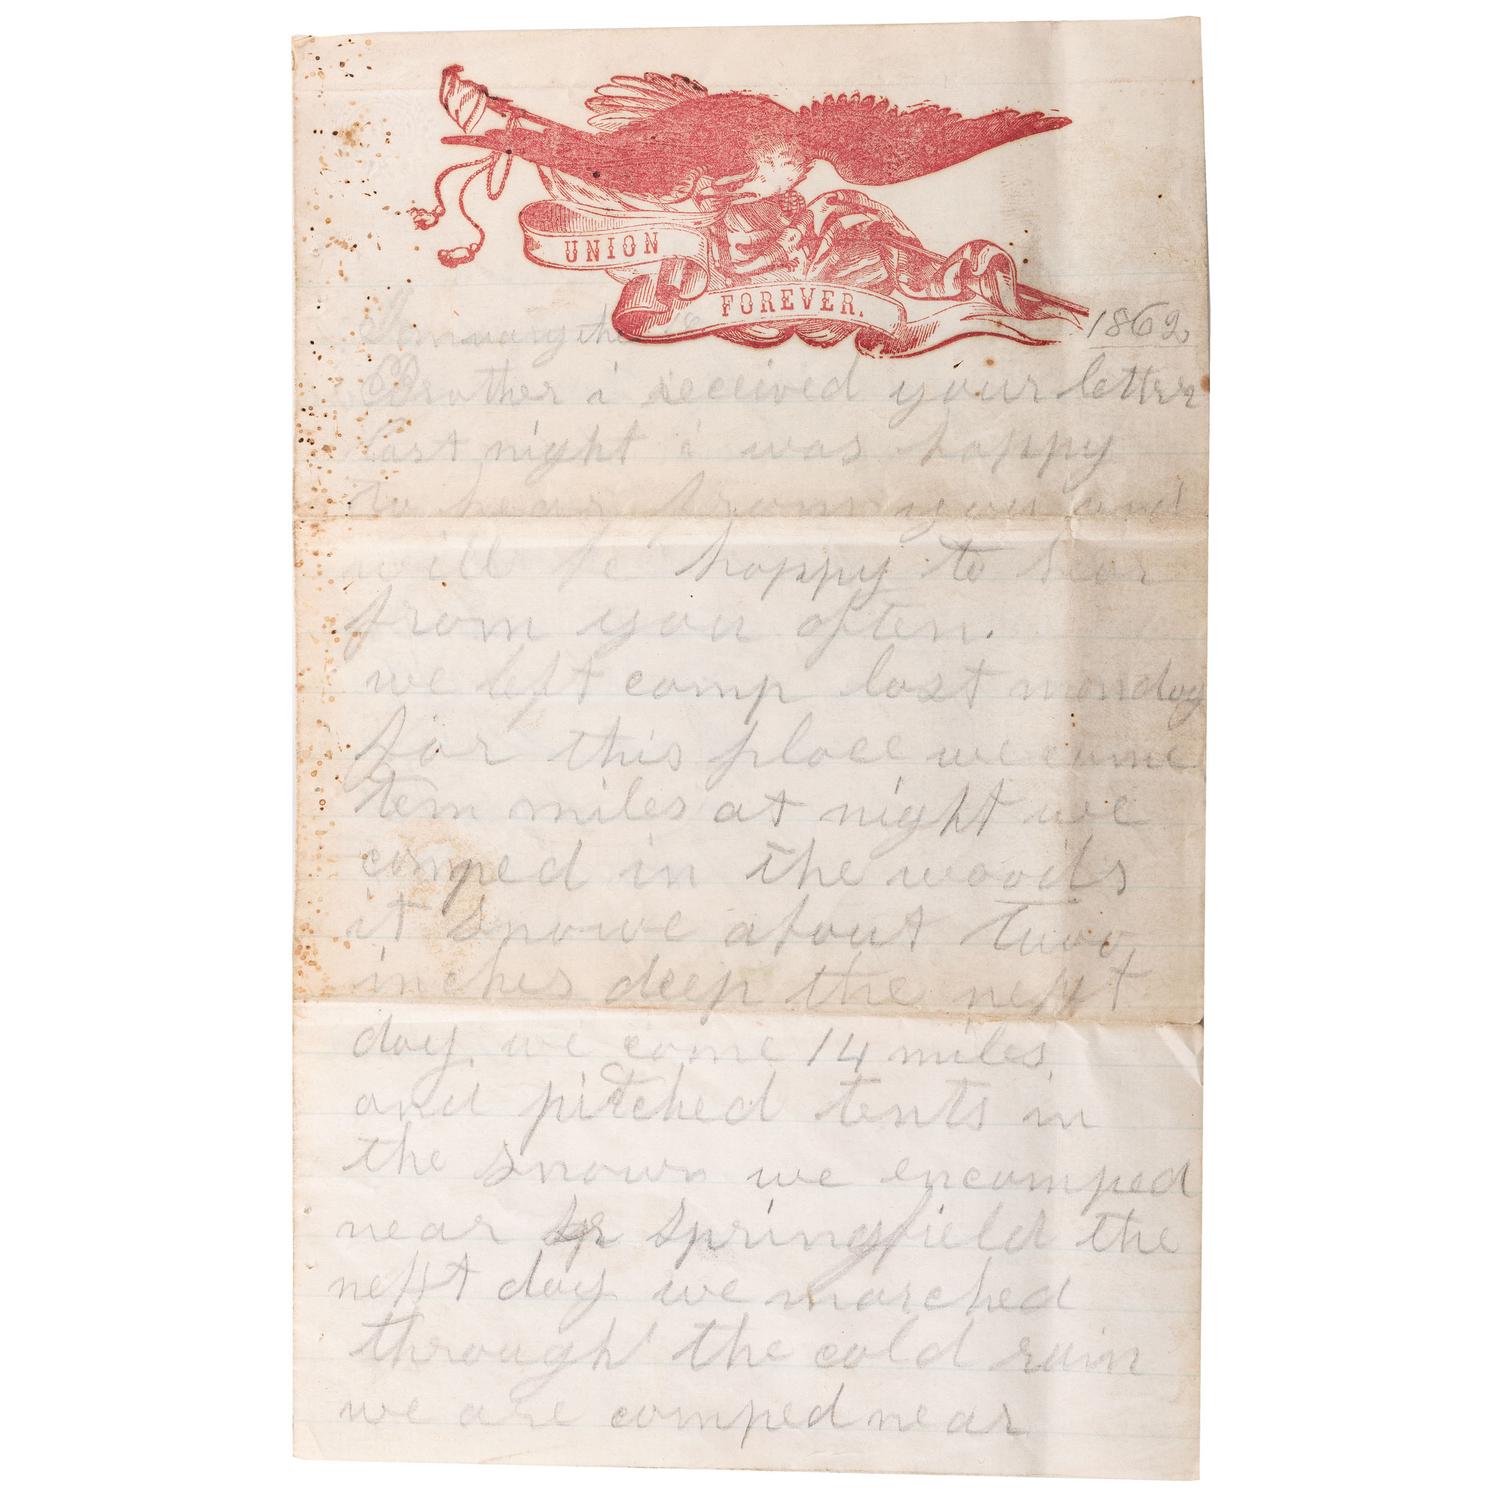 UNION
FOREVER.
January the 1862
Brother i received your letter
last night i was happy
to hear from you and
will be happy to hear
from you often.
we left camp last monday
for this place we came
ten miles at night we
camped in the woods
it snowe about two
inches deep the next
day we come 14 miles
and pitched tents in
the snown we encamped
near sp springfield the
next day we marched
through the cold rain
we are camped near